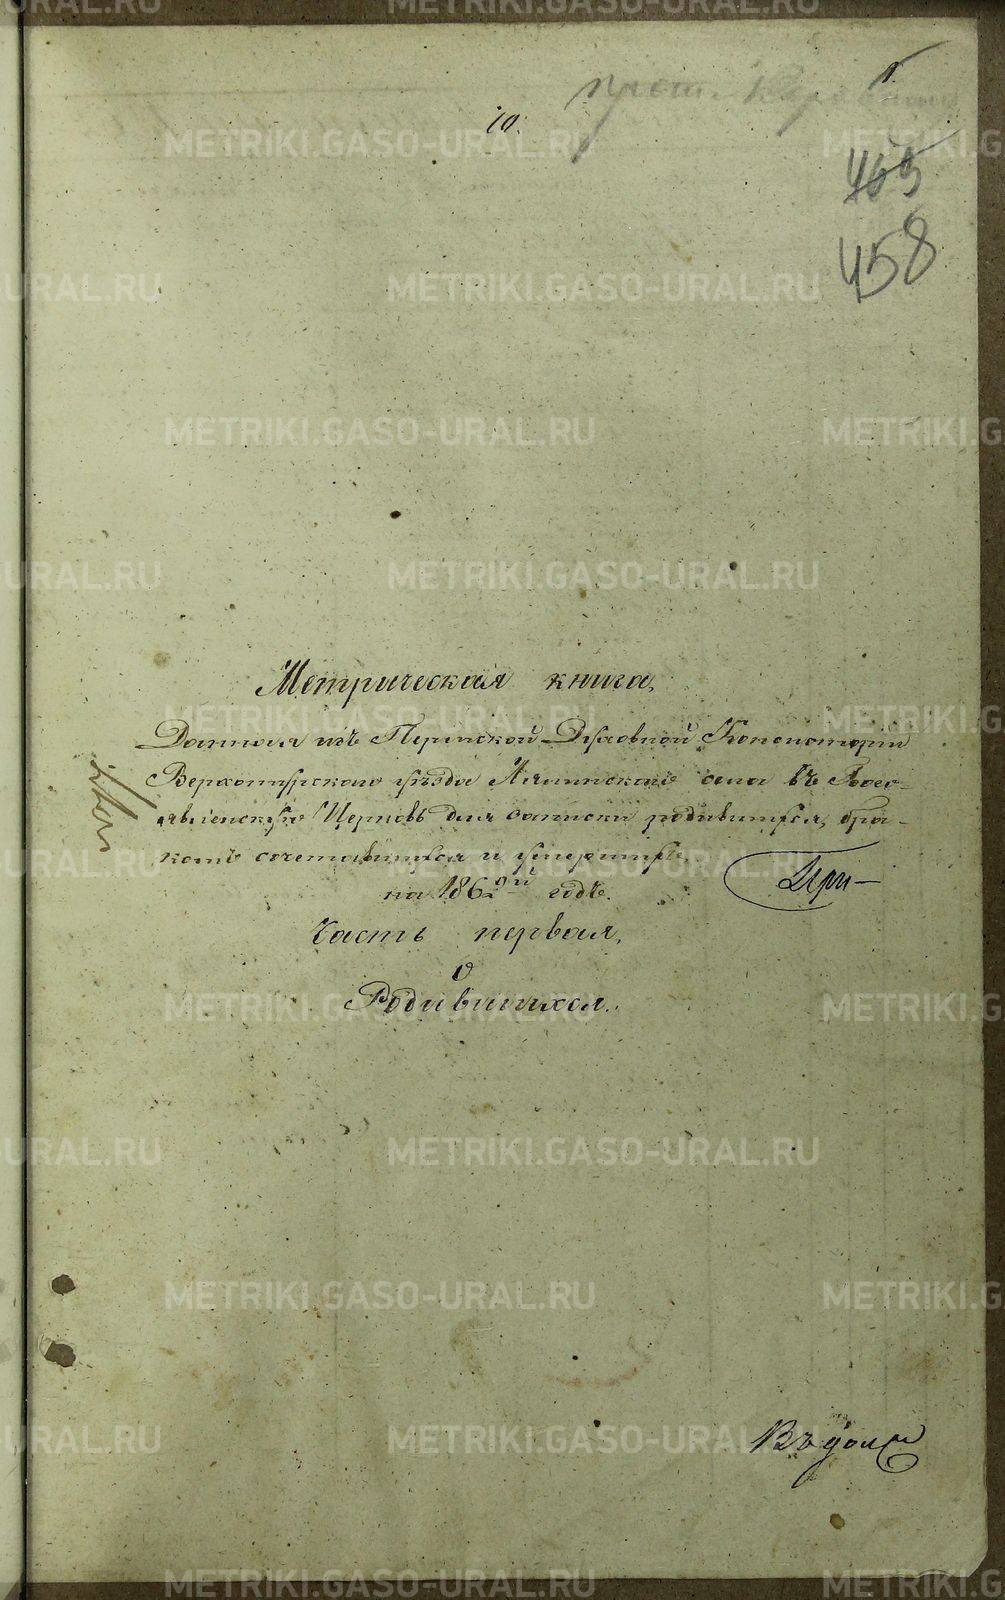 1.
10.
469
458
Метрическая книга,
Данная изъ Пермской Духовной Консисторіи
Верхотурскаго уѣзда Аяцинскаго села въ Бого-
явленскую Церковь для записки родившихся, бра-
комъ сочетавшихся и умершихъ
на 1862й годъ.
При-
Часть первая,
О
Родившихся.
METRIKI.GASO-URAL.RU